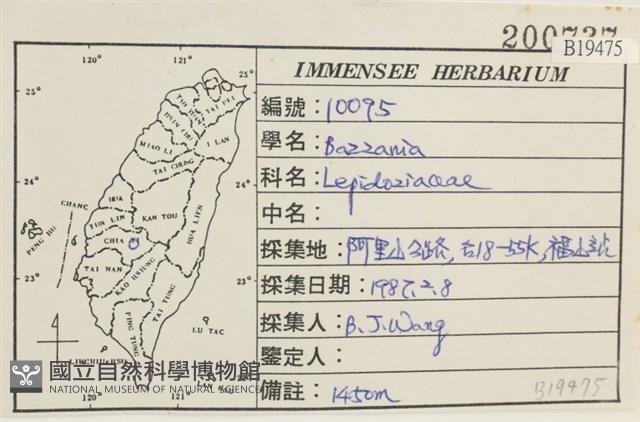 200737
B19475
IMMENSEE HERBARIUM
編號：10095
學名：Bazzania
科名：Lepidoziaceae
中名：
採集地：阿里山公路，台18-55K，福山站
採集日期：1987.2.8
採集人：B.J.Wang
鑒定人：
備註：1450m
B19475
120°
121°
25°
25°
TAI PEI
I LAN
MIAO LI
TAI CHUNG
24°
24°
HUA
CHANG
YUN LIN
KAN TOU
HUA LIEN
PENG HU
CHIA YI
23°
23°
TAI NAN
KAO HSIUNG
TAI TUNG
PING TUNG
LU TAO
LIUCHIU HSU
國立自然科學博物館
NATIONAL MUSEUM OF NATURAL SCIENCE
120°
121°